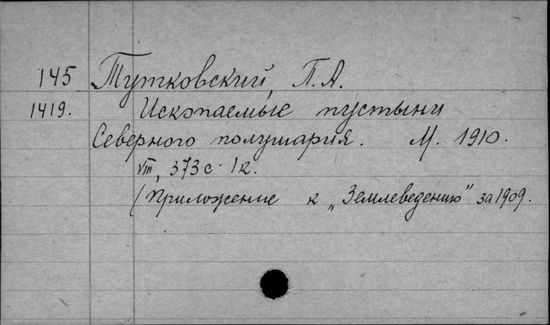 145 Тутковский, П. А.
1419. Ископаемые пустыни
Северного полушария. М. 1910.
VIII, 373 с. 1 к.
(Приложение к „Землеведению" за 1909.